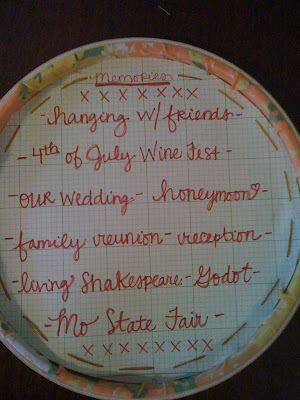 Memories
x x x x x x x
-hanging w/ friends-
-4th of July Wine Fest-
-our wedding- honeymoon♡
-family reunion- reception-
-living Shakespeare- Godot-
-Mo State Fair-
x x x x x x x x